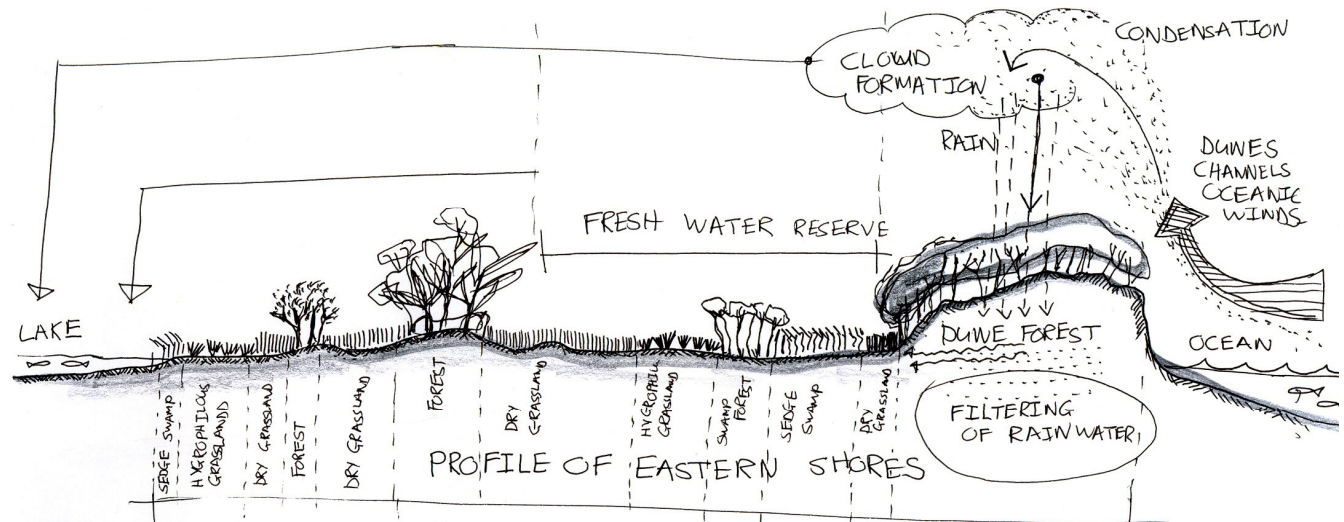 CONDENSATION
CLOUD
FORMATION
RAIN
DUNES
CHANNELS
OCEANIC
WINDS
FRESH WATER RESERVE
LAKE
DUNE FOREST
OCEAN
SEDGE SWAMP
HYGROPHILOUS
GRASSLANDD
DRY GRASSLAND
FOREST
DRY GRASSLAND
FOREST
DRY
GRASSLAND
HYGROPHIL
GRASSLAND
SWAMP
FOREST
SEDGE
SWAMP
DRY
GRASSLAND
FILTERING
OF RAINWATER
PROFILE OF EASTERN SHORES